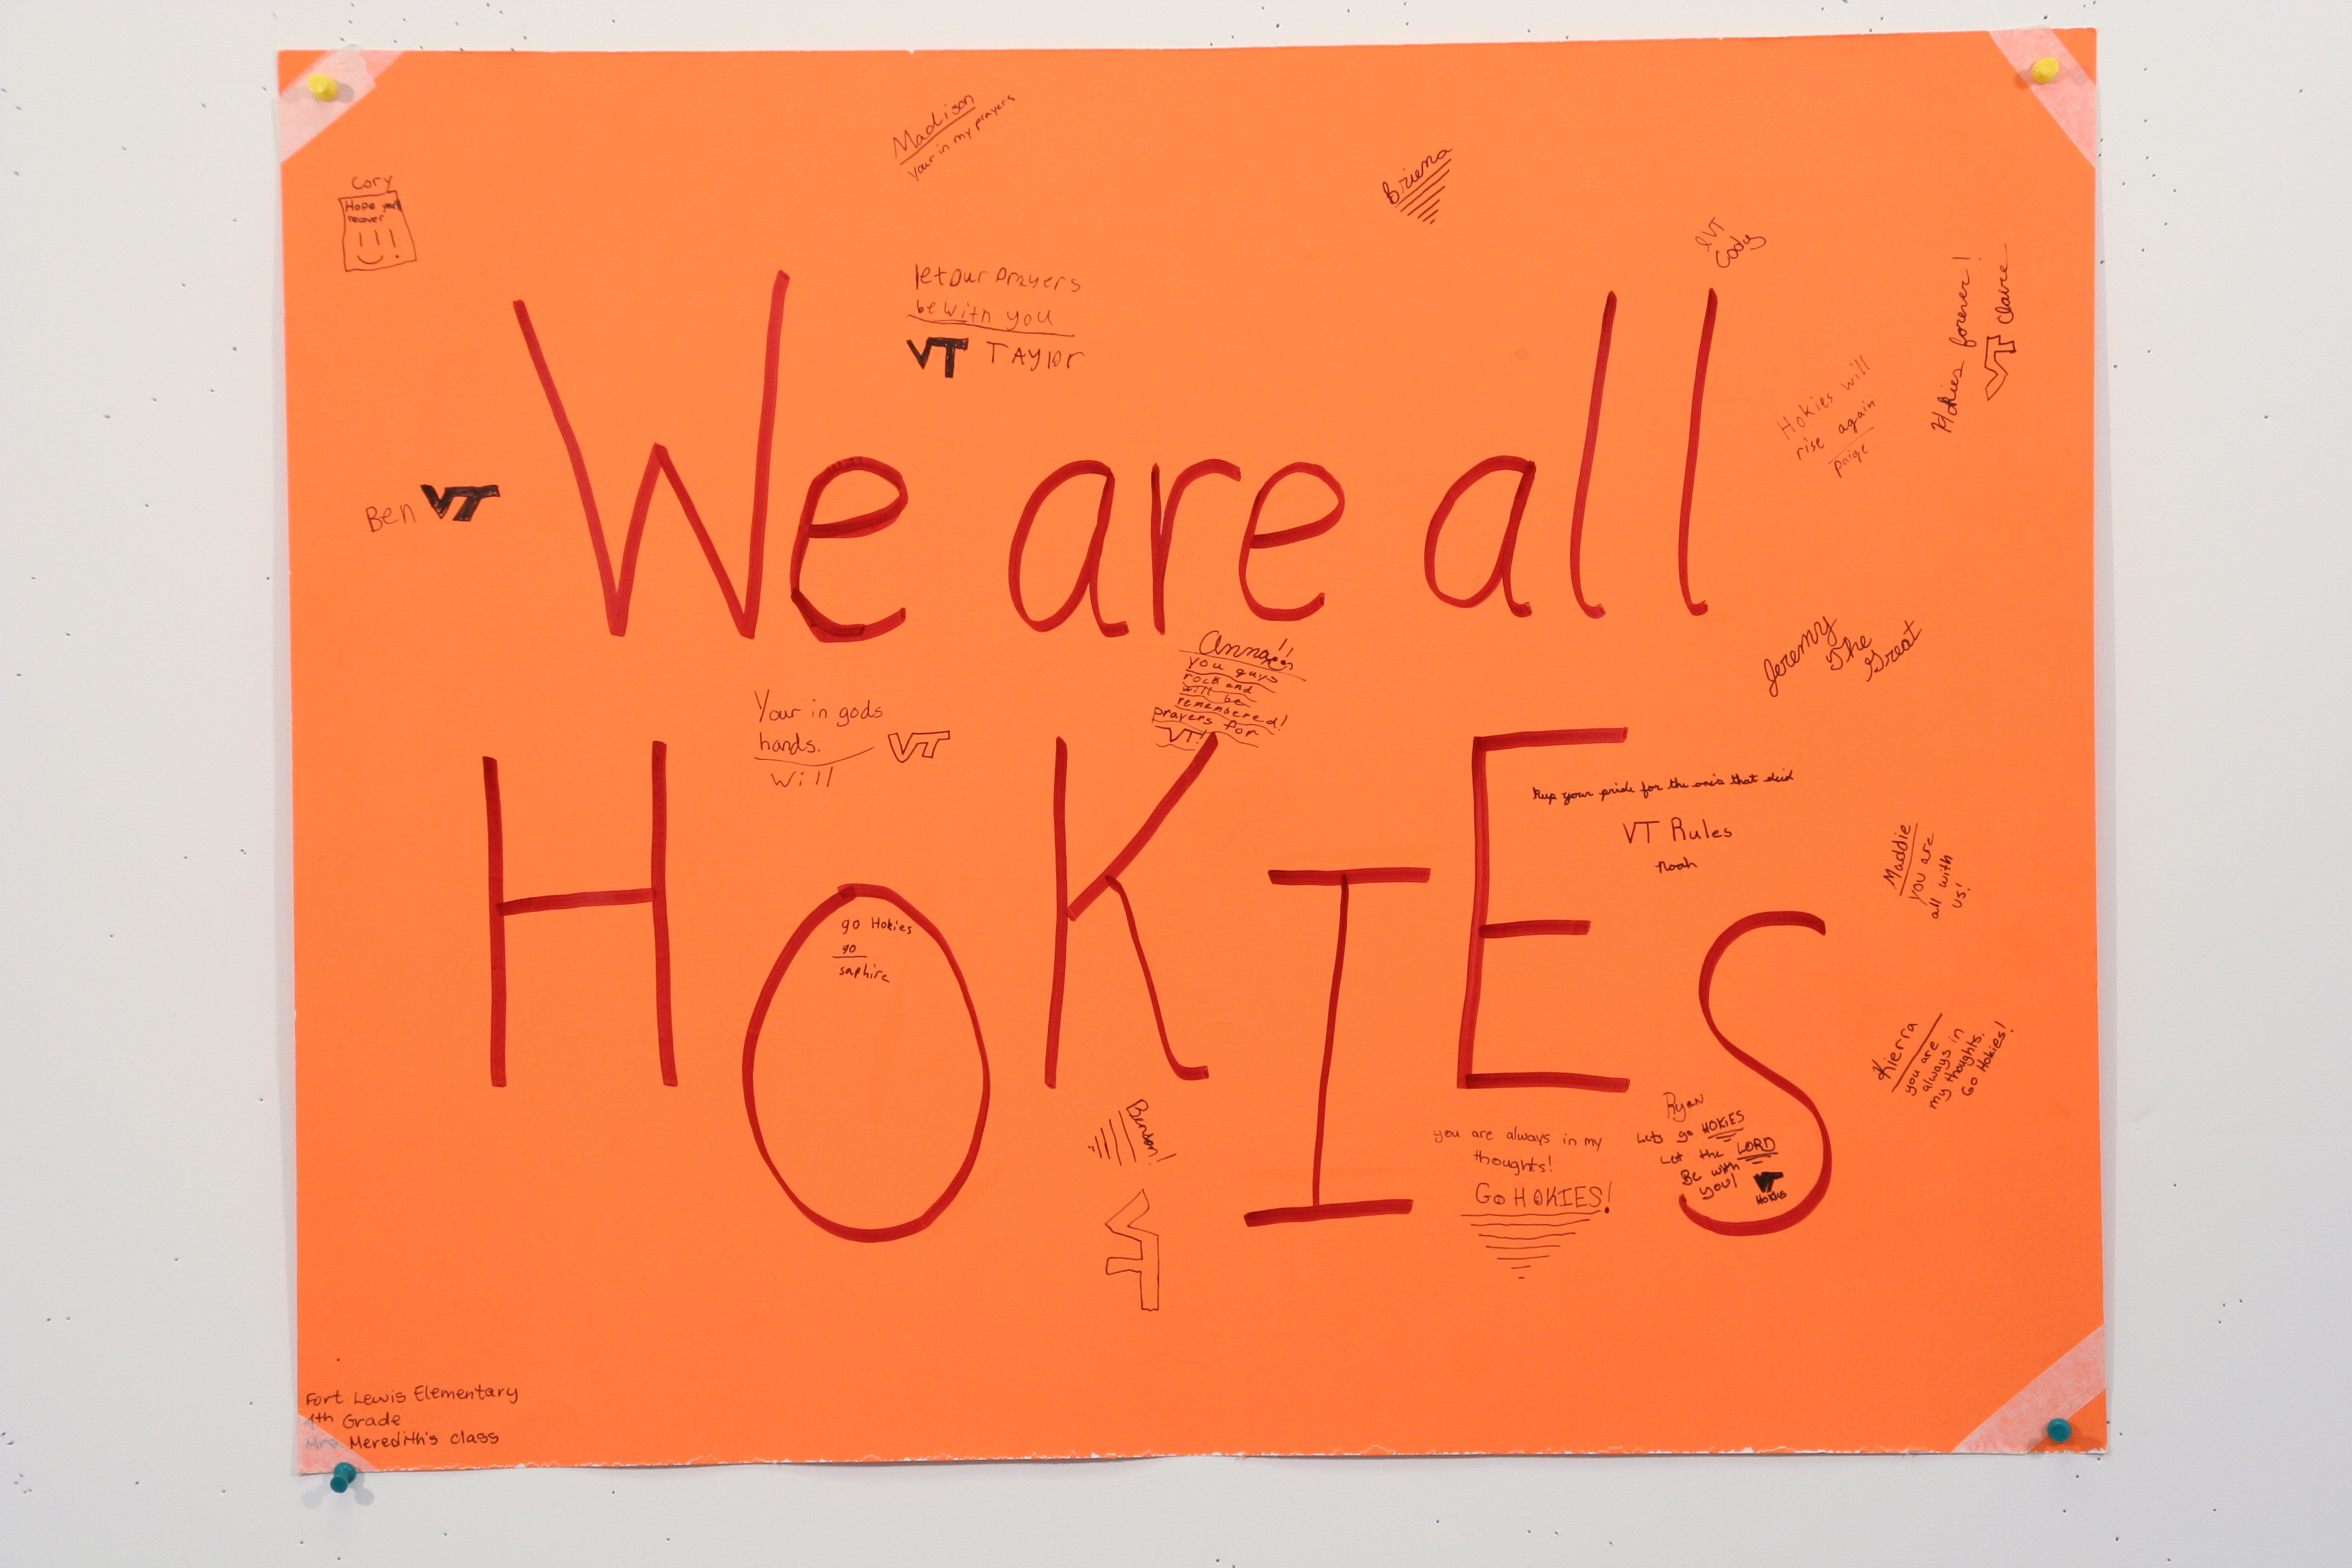 Madison
your in my prayers
Briena
Cory
Hope you'll
recover
VT
Cody
let Our prayers
be with you
VT TAYlor
Hokies forever!
VT Claire
Hokies will
rise again
paige
Ben VT
We are all
Jeremy
The
Great
Anna!!
you guys
rock and
will be
remembered!
prayers for
VT!
Your in gods
hands. VT
Will
HOKIES
Kep your pride for the one's that deid
VT Rules
Noah
Maddie
you are
all with
us!
go Hokies
go
saphire
Kierra
you are
always in
my thoughts.
Go Hokies!
Benson!
VT
you are always in my
thoughts!
Go HOKIES!
Ryan
Lets go HOKIES
Let the LORD
Be with
you! VT
Hokies
Fort Lewis Elementary
4th Grade
Mrs. Meredith's class